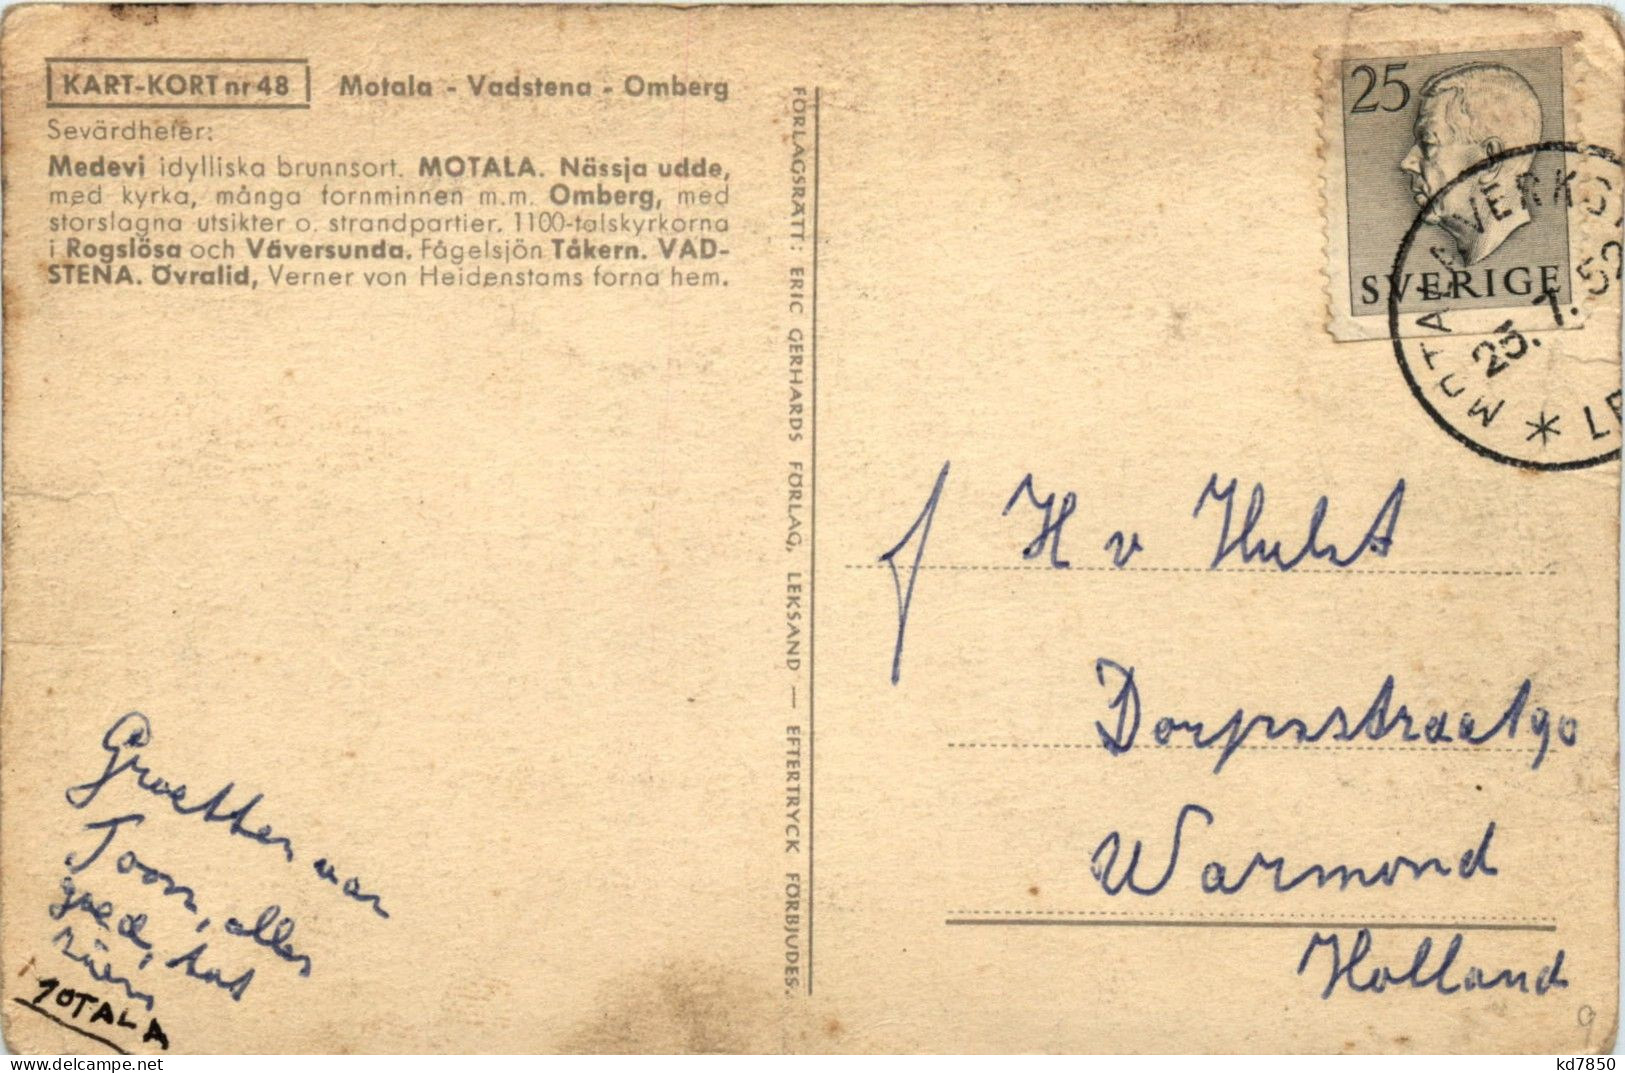 KART-KORT nr 48 Motala - Vadstena - Omberg
Sevärdheter:
Medevi idylliska brunnsort. MOTALA. Nässja udde,
med kyrka, många fornminnen m.m. Omberg, med
storslagna utsikter o. strandpartier. 1100-talskyrkorna
i Rogslösa och Väversunda. Fågelsjön Tåkern. VAD-
STENA. Övralid, Verner von Heidenstams forna hem.
FÖRLAGSRÄTT: ERIC GERHARDS FÖRLAG, LEKSAND — EFTERTRYCK FÖRBJUDES.
25
SVERIGE
MOTALA VERKST
25. 7. 52
* LB
H v Hulst
Dorpsstraat 90
Warmond
Holland
Groetten van
Toon, alles
goed, tot
ziens
MOTALA
9
kd7850
delcampe.net